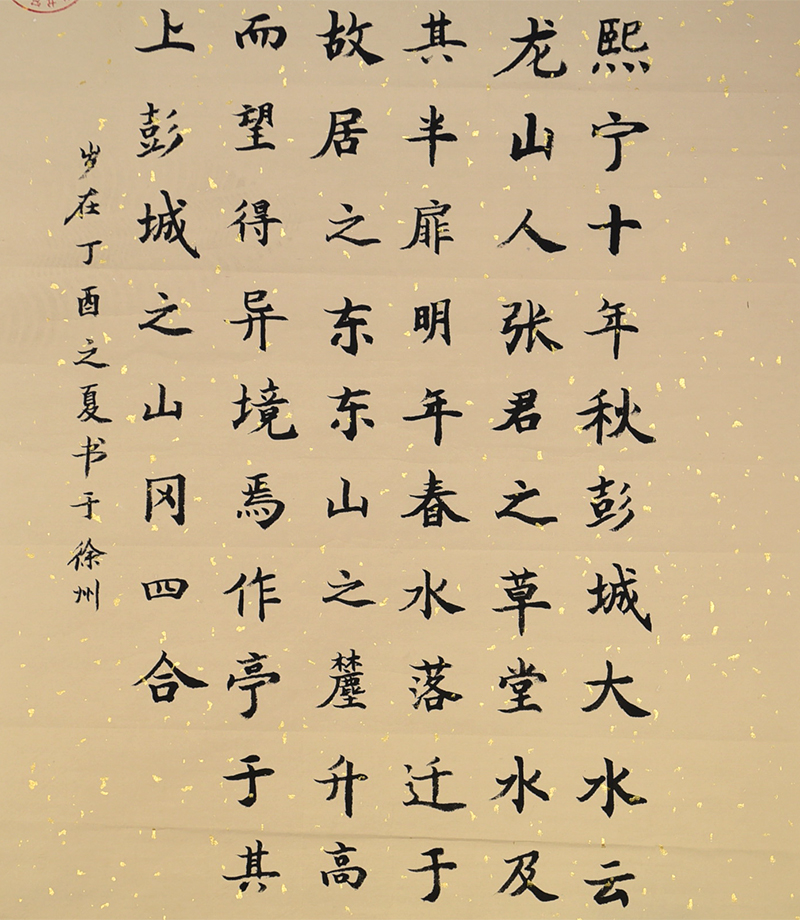 熙宁十年秋彭城大水云
龙山人张君之草堂水及
其半扉明年春水落迁于
故居之东东山之麓升高
而望得异境焉作亭于其
上彭城之山冈四合
岁在丁酉之夏书于徐州